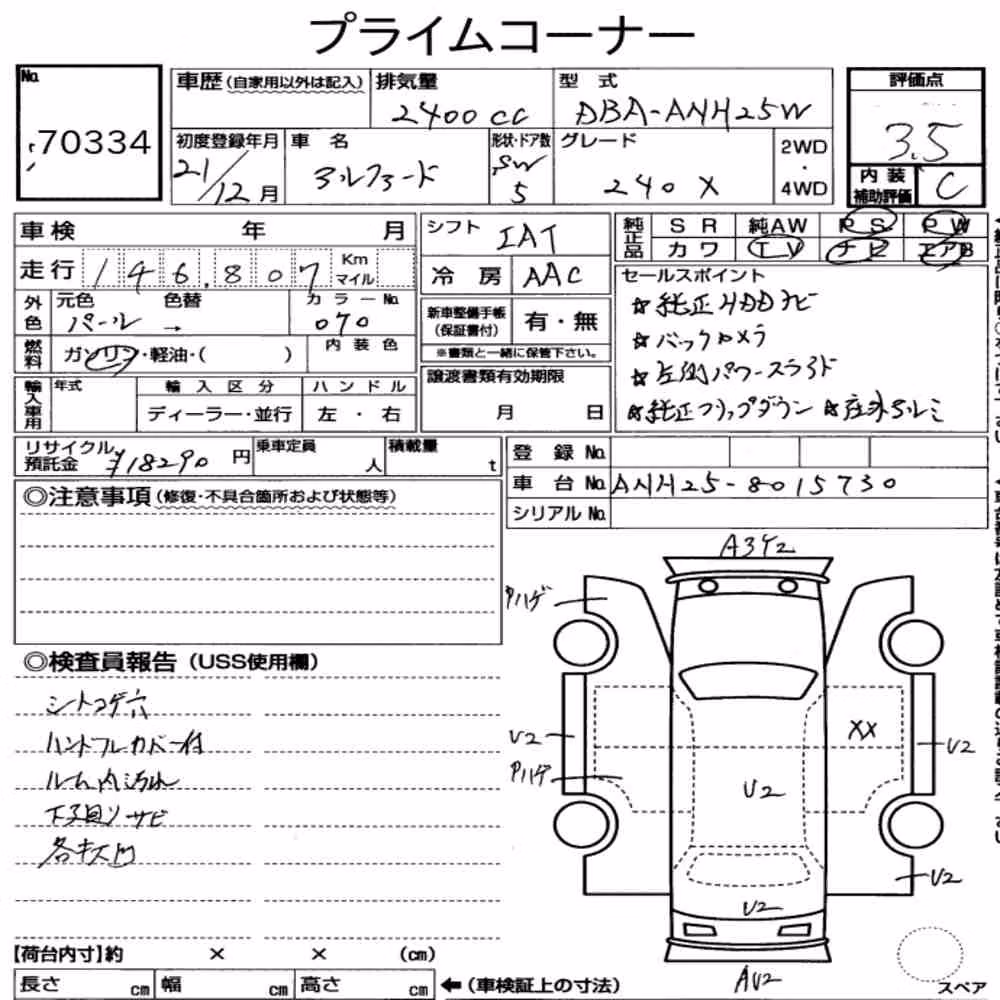 プライムコーナー
No.
70334
車歴(自家用以外は記入)
排気量
2400cc
型式
DBA-ANH25W
評価点
3.5
初度登録年月
21/12月
車名
アルファード
形状・ドア数
SW
5
グレード
240 X
2WD
・
4WD
内装
補助評価
C
車検 年 月
シフト
IAT
純正品
SR 純AW PS PW
カワ TV ナビ エアB
走行
146,807
Km
マイル
冷房
AAC
セールスポイント
☆純正HDDナビ
☆バックカメラ
☆左側パワースライド
☆純正フリップダウン ☆社外アルミ
外色
元色
パール
色替
→
カラーNo.
070
新車整備手帳
(保証書付)
有・無
※書類と一緒に保管下さい。
燃料
ガソリン・軽油・( )
内装色
譲渡書類有効期限
月 日
輸入車用
年式
輸入区分
ディーラー・並行
ハンドル
左・右
リサイクル
預託金
¥18290円
乗車定員
人
積載量
t
登録No.
車台No.
ANH25-8015730
シリアルNo.
◎注意事項(修復・不具合箇所および状態等)
◎検査員報告(USS使用欄)
シートコゲ穴
ハンドルカバー付
ルーム内汚れ
下回りサビ
各キズ凹
A3Y2
Pハゲ
U2
Pハゲ
XX
U2
U2
U2
U2
AU2
スペア
【荷台内寸】約 × × (cm)
長さ cm
幅 cm
高さ cm
←(車検証上の寸法)